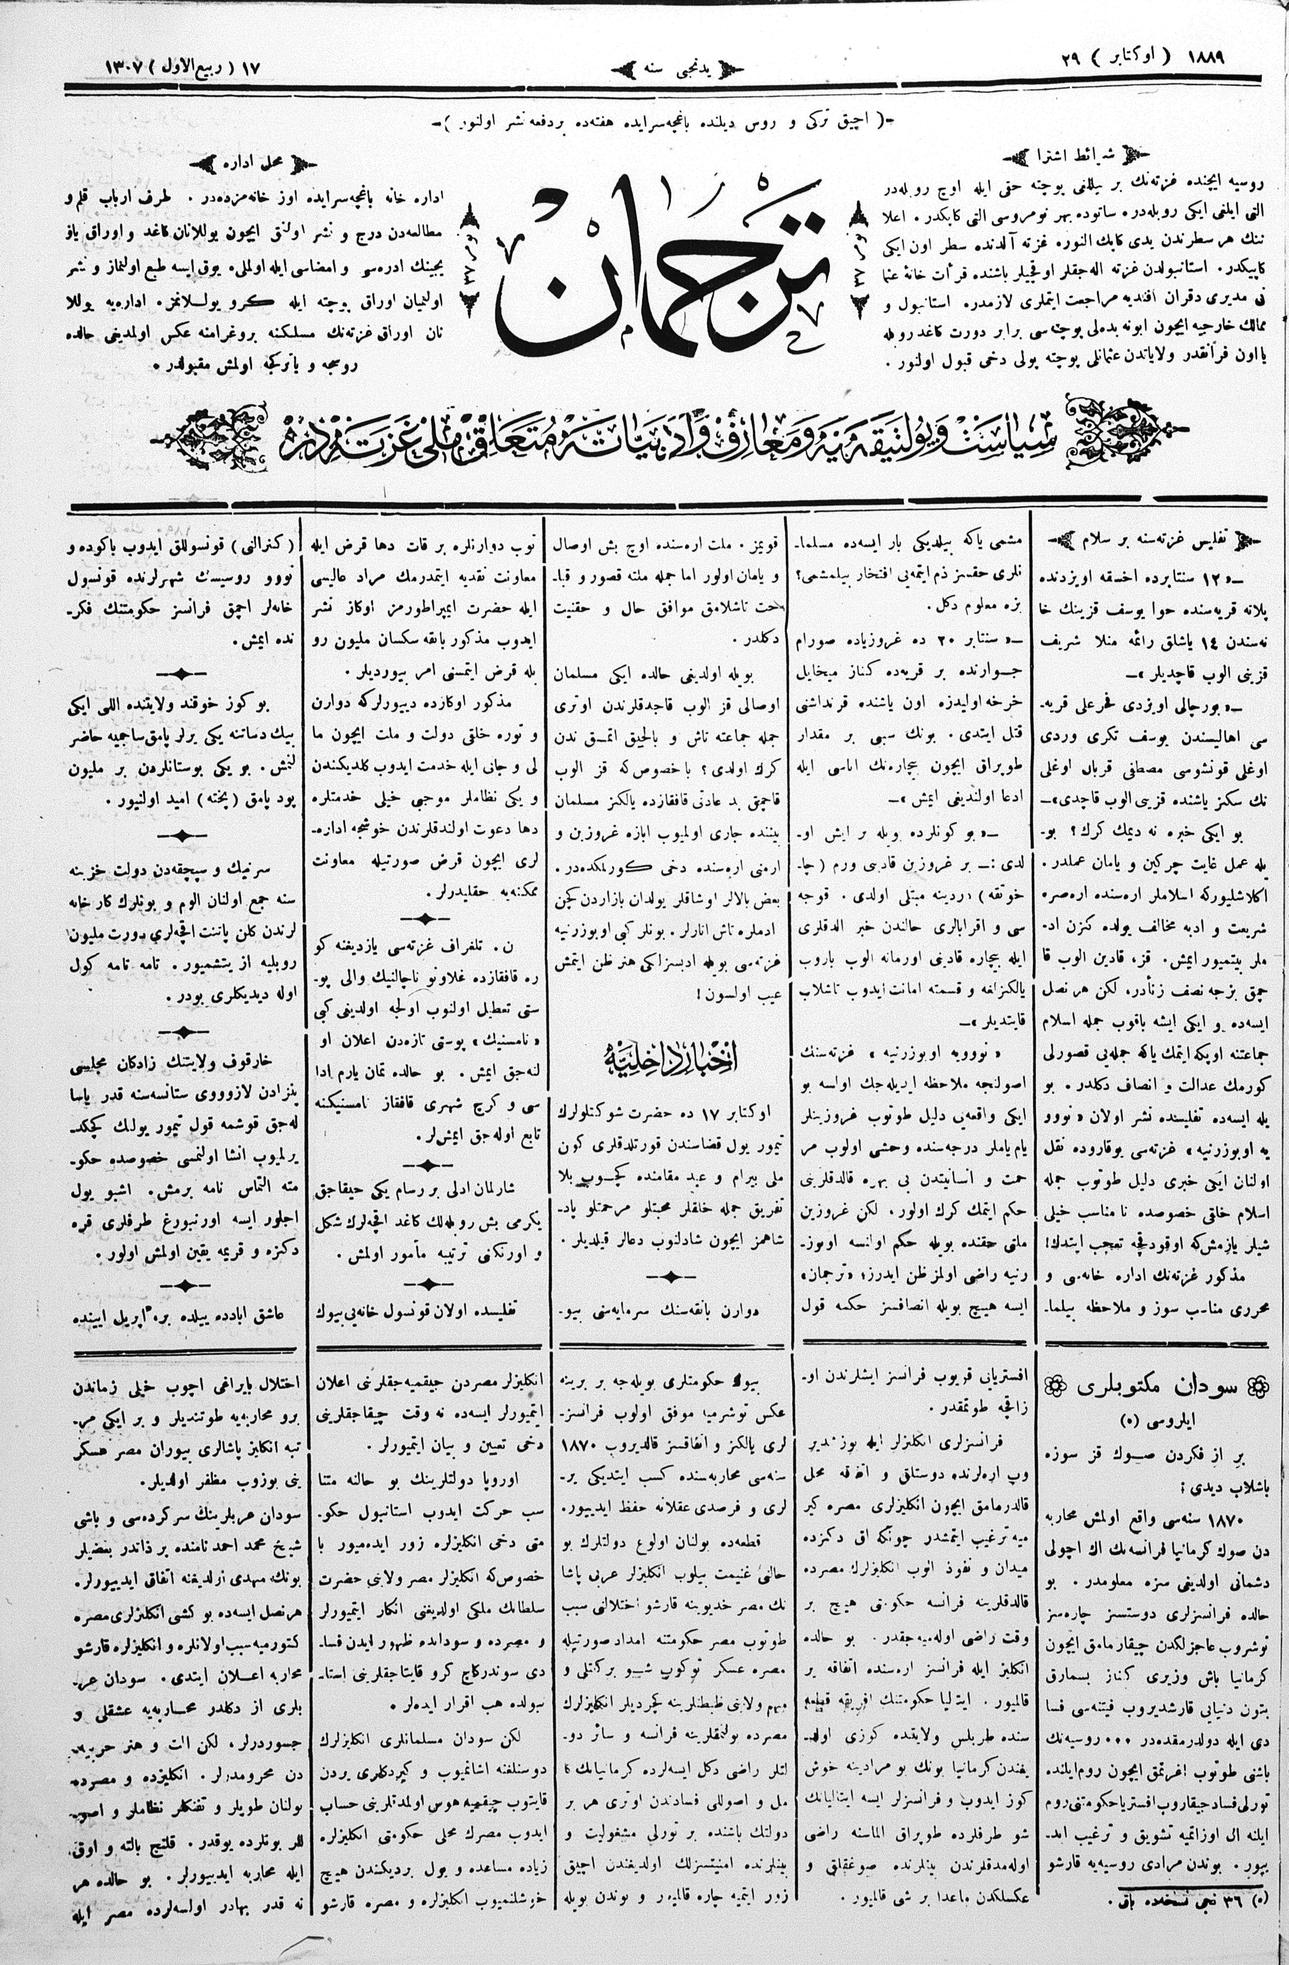 ١٨٨٩ ( اوكتابر ) ٢٩
يدنجى سنه
١٧ ( ربيع الاول ) ١٣٠٧
( آچيق تركى و روس ديلنده باغچه سرايده هفته ده بر دفعه نشر اولنور )
شرائط اشترا
روسيه ايچنده غزته نك بر ييللغى پوچته حقى ايله اوچ روبله در
التى ايلغى ايكى روبله در. ساتوده بهر نومروسى التى كاپكدر. اعلا
ننك هر سطرندن يدى كاپك النور. غزته آلدنده سطر اون ايكى
كاپيكدر. استانبولدن غزته اله جقلر اوقچيلر باشنده قرأت خانۀ عثما
نى مديرى دقران افنديه مراجعت ايتملرى لازمدر. استانبول و
ممالك خارجيه ايچون ابونه بدلى پوچته سى برابر دورت كاغد روبله
يا اون فرانقدر. ولاياتدن عثمانلى پوچته پولى دخى قبول اولنور.
نومر ٣٧
ترجمان
نومر ٣٧
محل اداره
اداره خانه باغچه سرايده اوز خانه مزده در. طرف ارباب قلم و
مطالعه دن درج و نشر اولنق ايچون يوللانان كاغد و اوراق ياز
يجينك ادره سى و امضاسى ايله اولملى. يوق ايسه طبع اولنماز و نشر
اولنميان اوراق پوچته ايله كرو يوللانمز. اداره يه يوللا
نان اوراق غزته نك مسلكنه پروغرامنه عكس اولمديغى حالده
روسجه و يا تركجه اولمش مقبولدر.
سياست و پوليتيقه مدنيه و معارف و ادبياته متعلق ملى غزته در
تفليس غزته سنه بر سلام
_ « ١٢ سنتابرده اخسقه اويزدنده
پلاته قريه سنده حوا يوسف قزينك خا
نه سندن ١٤ ياشلق رائمه منلا شريف
قزينى الوب قاچديلر » _
_ « بورچالى اويزدى فخر على قريه
سى اهاليسندن يوسف تكرى وردى
اوغلى قونشوسى مصطفى قربان اوغلى
نك سكز ياشنده قزينى الوب قاچدى » _
بو ايكى خبره نه ديمك كرك؟ بو
يله عمل غايت چركين و يامان عملدر.
اكلاشليوركه اسلاملر اره سنده اره صره
شريعت و ادبه مخالف يولده كزن اد
ملر بيتميور ايمش. قزه قادين الوب قا
چمق بزجه نصف زنادر. لكن هر نصل
ايسه ده و ايكى ايشه باقوب جمله اسلام
جماعتنه اوپكه ايتمك ياكه جمله يى قصورلى
كورمك عدالت و انصاف دكلدر. بو
يله ايسه ده تفليسده نشر اولان « نووو
يه اوبوزرنيه » غزته سى يوقاروده نقل
اولنان ايكى خبرى دليل طوتوب جمله
اسلام خلقى خصوصده نا مناسب خيلى
شيلر يازمش كه اوقودقچه تعجب ايتدك!
مذكور غزته نك اداره خانه سى و
محررى مناسب سوز و ملاحظه بيلما
مشمى ياكه بيلديكى بار ايسه ده مسلما
نلرى حقسز ذم ايتمه يى افتخار بيلمشمى؟
بزه معلوم دكل.
_ « سنتابر ٢٠ ده غروزياده صورام
جوارنده بر قريه ده كناز ميخايل
خرخه اوليدزه اون ياشنده قرنداشنى
قتل ايتدى. بونك سببى بر مقدار
طوپراق ايچون بيچاره نك اناسى ايله
ادعا اولنديغى ايمش » _
_ « بو كونلرده ويله بر ايش او
لدى : _ بر غروزين قادينى ورم ( چا
خوتقه ) دردينه مبتلى اولدى. قوجه
سى و اقربالرى حالندن خبر الدقلرى
ايله بيچاره قادينى اورمانه الوب باروب
يالكزلغه و قسمته امانت ايدوب تاشلاب
قايتديلر » _
« نوويه اوبوزرنيه » غزته سنك
اصولنجه ملاحظه ايديله جك اولسه بو
ايكى واقعه يى دليل طوتوب غروزينلر
يام ياملر درجه سنده وحشى اولوب مر
حمت و انسانيتدن بى بهره قالدقلرينى
حكم ايتمك كرك اولور. لكن غروزين
ملتى حقنده بويله حكم اولنسه اوبوز
رنيه راضى اولمز ظن ايدرز؛ « ترجمان »
ايسه هيچ بويله انصافسز حكمه قول
قويمز. ملت اره سنده اوچ بش اوصال
و يامان اولور اما جمله ملته قصور و قبا
حت تاشلامق موافق حال و حقنيت
دكلدر.
بويله اولديغى حالده ايكى مسلمان
اوصالى قز الوب قاچدقلرندن اوترى
جمله جماعته تاش و بالچيق اتمق ندن
كرك اولدى؟ با خصوص كه قز الوب
قاچمق بد عادتى قافقازده يالكز مسلمان
بيننده جارى اولميوب ابازه غروزين و
ارمنى اره سنده دخى كورلمكده در.
بعض بالالر اوشاقلر يولدان بازاردن كچن
ادملره تاش انارلر. بونلر كبى اوبوزرنيه
غزته سى بويله ادبسزلكى هنر ظن ايتمش
عيب اولسون!
اخبار داخليه
اوكتابر ١٧ ده حضرت شوكتلولرك
تيمور يول قضاسندن قورتلدقلرى كون
ملى بيرام و عيد مقامنده كچوب بلا
تفريق جمله خلقلر محبتلو مرحمتلو پاد
شاهمز ايچون شادلنوب دعالر قيلديلر.
دوارن بانقه سنك سرمايه سنى بيو
توب دوارنلره بر قات دها قرض ايله
معاونت نقديه ايتدرمك مراد عاليسى
ايله حضرت ايمپراطورمز اوكاز نشر
ايدوب مذكور بانقه سكسان مليون رو
بله قرض ايتمسنى امر بيورديلر.
مذكور اوكازده دييورلركه دوارن
و توره خلقى دولت و ملت ايچون ما
لى و جانى ايله خدمت ايدوب كلديكندن
و يكى نظاملر موجبى خيلى خدمتلره
دها دعوت اولندقلرندن خوشجه اداره
لرى ايچون قرض صورتيله معاونت
ممكنه يه حقليدرلر.
ن. تلغراف غزته سى يازديغنه كو
ره قافقازده غلاونو ناچالنيك والى پو
ستى تعطيل اولنوب اولجه اولديغى كبى
« نامستنيك » پوستى تازه دن اعلان او
لنه جق ايمش. بو حالده تمان يارم ادا
سى و كرچ شهرى قافقاز نامستنيكنه
تابع اوله جق ايمشلر.
شارلمان ادلى بر رسام يكى چيقاجق
يكرمى بش روبله لك كاغد اقچه لرك شكل
و اورنكنى ترتيبه مأمور اولمش.
تفليسده اولان قونسول خانه يى بيوك
( كنرالنى ) قونسوللق ايدوب باكوده و
نووو روسيسك شهرلرنده قونسول
خانه لر اچمق فرانسز حكومتنك فكر
نده ايمش.
بو كوز خوقند ولايتنده اللى ايكى
بيك دساتنه يكى يرلر پامق ساچميه حاضر
لنمش. بو يكى بوستانلردن بر مليون
پود پامق ( پخته ) اميد اولنيور.
سرنيك و سپچقه دن دولت خزينه
سنه جمع اولنان الوم و بونلرك كارخانه
لرندن كلن پاتنت اقچه لرى دورت مليون
روبليه از يتشميور. تامه تامه كول
اوله ديديكلرى بودر.
خارقوف ولايتنك زادكان مجلسى
پنزادن لازوووى ستانسه سنه قدر ياسا
له جق قوشمه قول تيمور يولنك كچكد
يرلميوب انشا اولنمسى خصوصده حكو
مته التماس نامه يرمش. اشبو يول
اچلور ايسه اورنبورغ طرفلرى قره
دكزه و قريمه يقين اولمش اولور.
عاشق ابادده ييلده بر ٥ اپريل ايينده
سودان مكتوبلرى
ايلروسى (٥)
بر از فكردن صوك قز سوزه
باشلاب ديدى :
١٨٧٠ سنه سى واقع اولمش محاربه
دن صوك كرمانيا فرانسه نك اك اچولى
دشمانى اولديغى سزه معلومدر. بو
حالده فرانسزلرى دوستسز چاره سز
توشروب عاجزلكدن چيقارمامق ايچون
كرمانيا باش وزيرى كناز بسمارق
بتون دنيايى قارشديروب فيتنه سى فسا
دى ايله دولدرمقده در ٠٠٠ روسيه نك
باشنى طوتوب اغرتمق ايچون روم ايلنده
تورلى فساد چيقاروب افستريا حكومتنى روم
ايلنه ال اوزاتميه تشويق و ترغيب ايد
ييور. بوندن مرادى روسيه يه قارشو
(٥) ٣٦ نجى نسخه لاره باق.
افسترياىى قزيوب فرانسز ايشلرندن او
زاقچه طوتمقدر.
فرانسزلرى انكليزلر ايله بوزشدير
وب اره لرنده دوستلق و اتفاقه محل
قالدرمامق ايچون انكليزلرى مصره كير
ميه ترغيب ايتمشدر چونكه اق دكزده
ميدان و نفوذ الوب انكليزلرك مصرده
قالدقلرينه فرانسه حكومتى هيچ بر
وقت راضى اوله ميه جقدر. بو حالده
انكليز ايله فرانسز اره سنده اتفاقه ير
قالميور. ايتاليا حكومتنك افريقه قطعه
سنده طربلس ولايتنده كوزى اولد
يغندن كرمانيا بونك بو مرادينه خوش
كوز ايدوب و فرانسزلر ايسه ايتاليانك
شو طرفلرده طوپراق الماسنه راضى
اوله مدقلرندن بينلرنده صوغقلق و
عكسلكدن ماعدا بر شى قالميور.
بيوك حكومتلرى بويله جه بر برينه
عكس توشرميه موفق اولوب فرانسز
لرى يالكز و اتفاقسز قالديروب ١٨٧٠
سنه سى محاربه سنده كسب ايتديكى ير
لرى و فرصدى عقلانه حفظ ايدييور.
قطعه ده بولنان اولوغ دولتلرك بو
حالنى غنيمت بيلوب انكليزلر عربى پاشا
نك مصر خديوينه قارشو اختلالنى سبب
طوتوب مصر حكومتنه امداد صورتيله
مصره عسكر توكوب شو بركتلى و
مهم ولايتى ظبطنلرينه كچرديلر. انكليزلرك
مصرده بولنمقلرينه فرانسه و سائر دو
لتلر راضى دكل ايسه لرده كرمانيانك كا
مل و اصوللى فسادندن اوترى هر بر
دولتك باشنده بر تورلى مشغوليت و
بينلرنده امنيتسزلك اولديغندن اچيق
زور ايتميه چاره قالميور و بوندن بويله
انكليزلر مصردن چيقميه جقلرينى اعلان
ايتميورلر ايسه ده نه وقت چيقاجقلرينى
دخى تعيين و بيان ايتميورلر.
اوروپا دولتلرينك بو حالنه متنا
سب حركت ايدوب استانبول حكو
متى دخى انكليزلره زور ايده ميور با
خصوص كه انكليزلر مصر ولايتى حضرت
سلطانك ملكى اولديغنى انكار ايتميورلر
و مصرده و سودانده ظهور ايدن فسا
دى سوندركاچ كرو قايتاجقلرينى استا
نبولده هب اقرار ايده لر.
لكن سودان مسلمانلرى انكليزلرك
دوستلغنه اشانميوب و كيردكلرى يردن
قايتوب چيقميه هوس اولمدقلرينى حساب
ايدوب مصرك محلى حكومتى انكليزلره
زياده مساعده و يول برديكندن هيچ
خوشلنميوب انكليزلره و مصره قارشو
اختلال بايراغى اچوب خيلى زماندن
برو محاربه يه طوتنديلر و بر ايكى مر
تبه انكليز پاشالرى بيوران مصر عسكر
ينى بوزوب مظفر اولديلر.
سودان عربلرينك سركرده سى و باشى
شيخ محمد احمد نامنده بر ذاتدر بعضيلر
بونك مهدى ازلديغنه اتفاق ايدييورلر.
هر نصل ايسه ده بو كشى انكليزلرى مصره
كتورميه سبب اولانلره و انكليزلره قارشو
محاربه اعلان ايتدى. سودان عر
بلرى از دكلدر محاربه يه عشقلى و
جسوردرلر. لكن الت و هنر حربيه
دن محرومدرلر. انكليزده و مصرده
بولنان طوپلر و تفنكلر نظاملر و اصو
للر بونلرده يوقدر. قلنج بالته و اوق
ايله محاربه ايدييورلر. بو حالده هر
نه قدر بهادر اولسه لرده مصر ايله